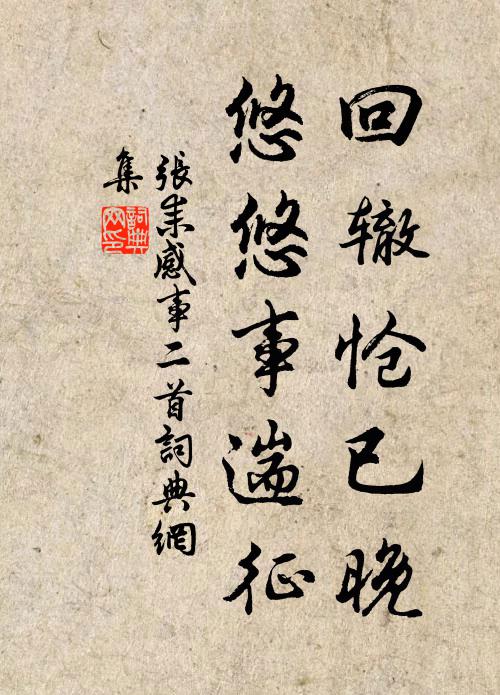 回辙怆已晚
悠悠事遄征
張耒感事二首詞典網
集
詞典
网印